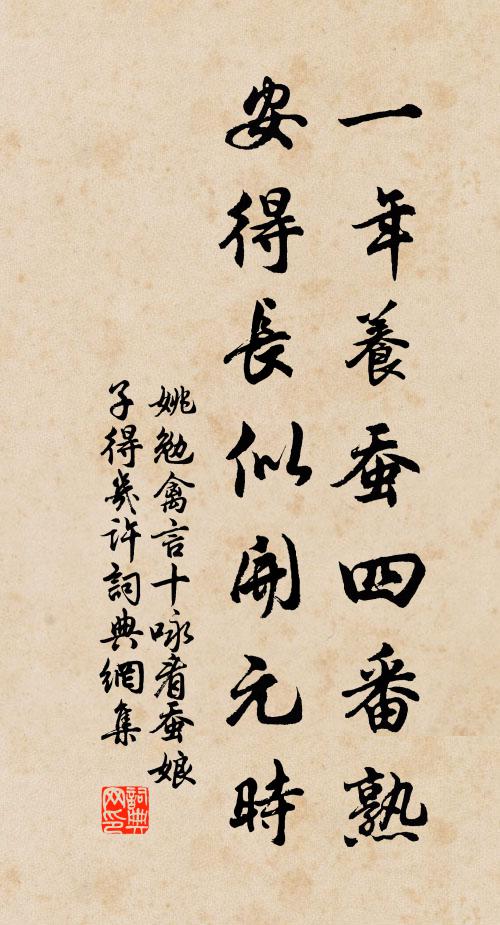 一年養蚕四番熟
安得長似開元時
姚勉禽言十咏看蚕娘
子得幾許詞典網集
詞典網印